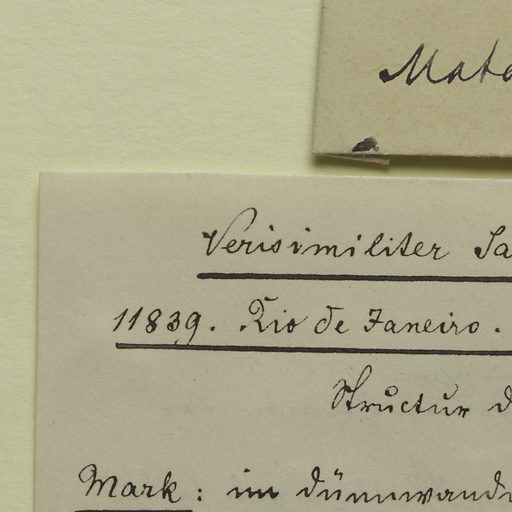 Mato
Verisimiliter Sa
11839. Rio de Janeiro.
Structur d
Mark: im dünnwand